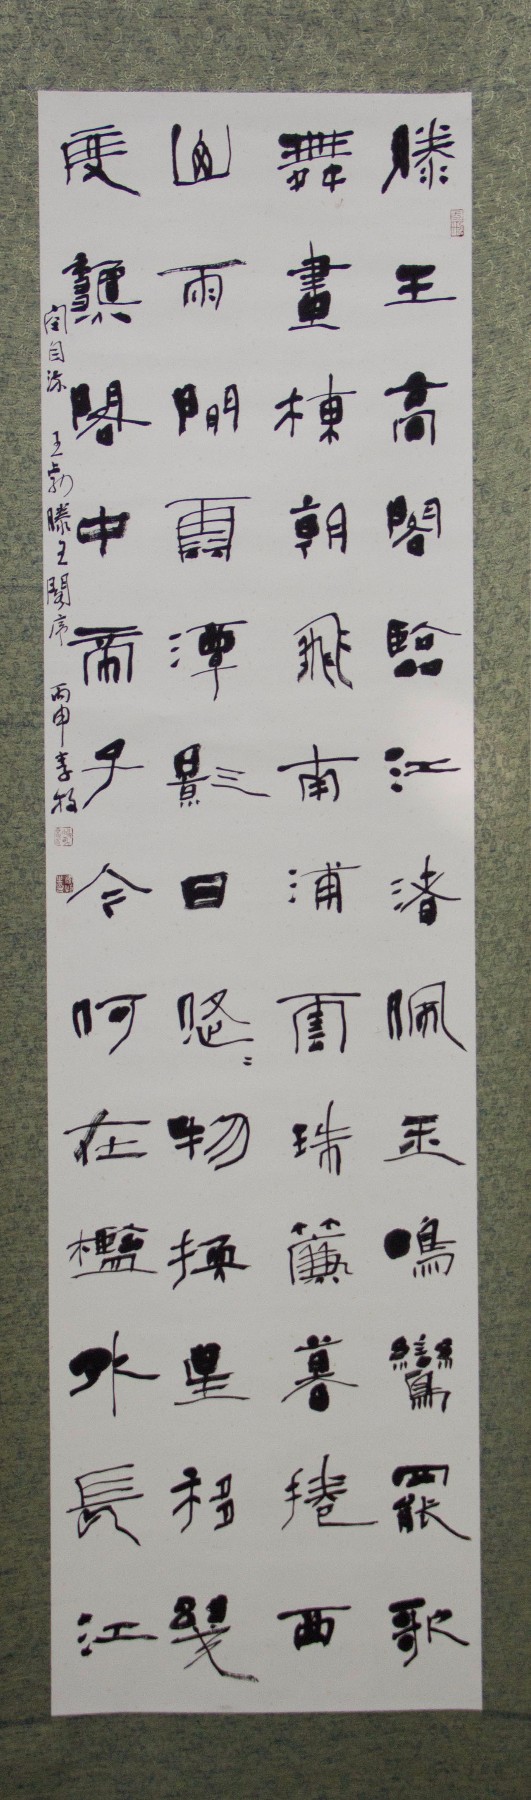 滕王高閣臨江渚佩玉鳴鸞罷歌
舞畫棟朝飛南浦雲珠簾暮捲西
山雨閒雲潭影日悠〻物換星移幾
度龝閣中帝子今何在檻外長江
空自流 王勃滕王閣序 丙申